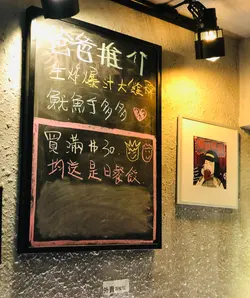 爸推介
生炸爆汁大雞
魷魚手多多
買滿$30
均送是日餐飲